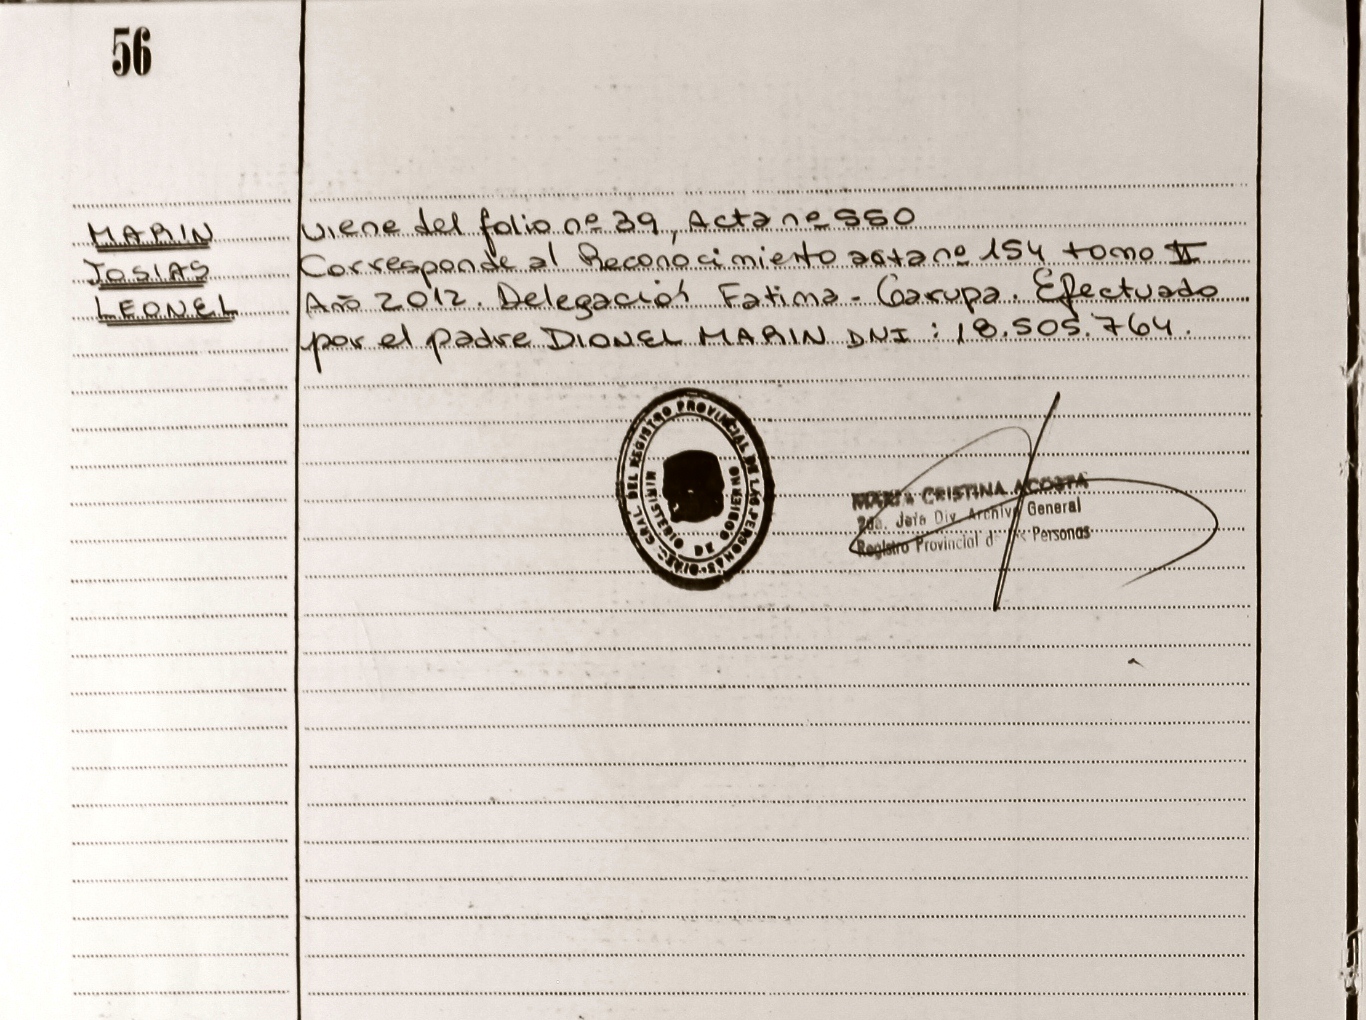 56
MARIN
JOSIAS
LEONEL
Viene del folio nº 39, Acta nº 550
Corresponde al Reconocimiento acta nº 154 tomo II
Año 2012. Delegación Fatima - Garupa. Efectuado
por el padre DIONEL MARIN DNI : 18.505.764.
GRAL. DEL REGISTRO PROVINCIAL DE LAS PERSONAS
MINISTERIO DE GOBIERNO
MARIA CRISTINA ACOSTA
2da. Jefa Div. Archivo General
Registro Provincial de Personas